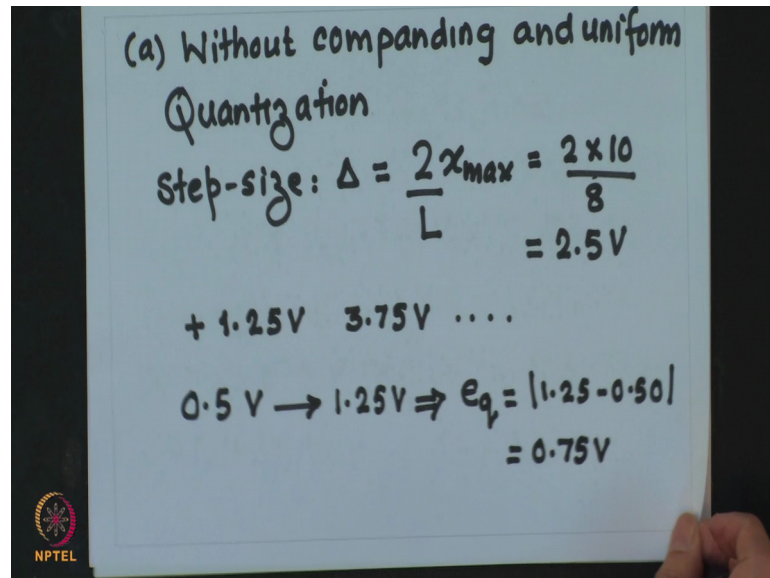 (a) Without companding and uniform
Quantization
Step-size: Δ = 2xmax/L = 2×10/8
= 2.5 V
+ 1.25 V 3.75 V ....
0.5 V → 1.25 V ⇒ eq = |1.25 - 0.50|
= 0.75 V
NPTEL